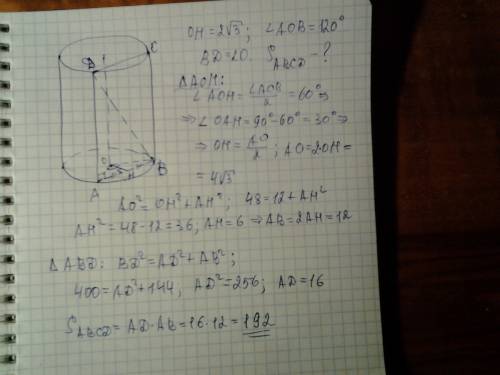 OH = 2√3 ; ∠AOB = 120°
BD = 20. S_ABCD - ?
D
C
O
H
A
B
△AOH:
∠AOH = ∠AOB/2 = 60° ⇒
⇒ ∠OAH = 90° - 60° = 30° ⇒
⇒ OH = AO/2 ; AO = 2OH =
= 4√3
AO² = OH² + AH² ; 48 = 12 + AH²
AH² = 48 - 12 = 36 ; AH = 6 ⇒ AB = 2AH = 12
△ABD: BD² = AD² + AB² ;
400 = AD² + 144, AD² = 256 ; AD = 16
S_ABCD = AD · AB = 16 · 12 = 192